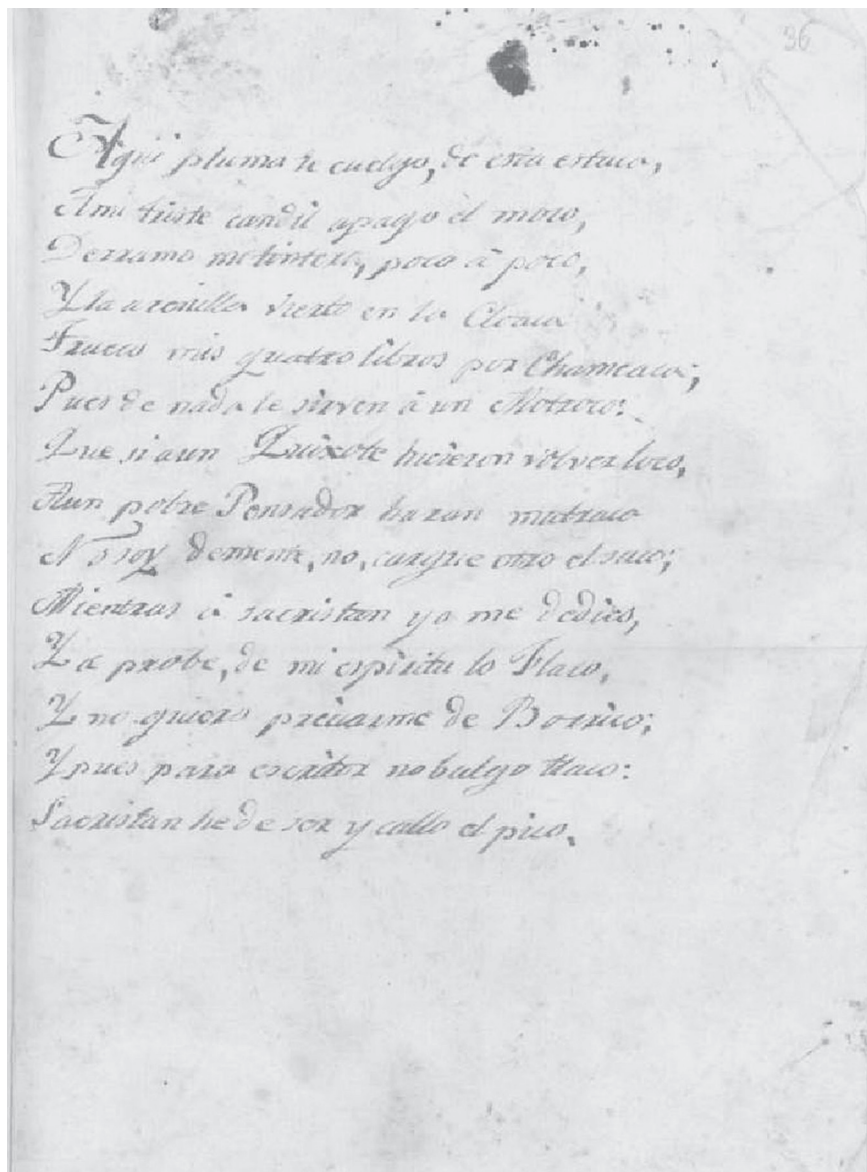 36
Aqui pluma te cuelgo, de esta estaca,
A mi triste candil apago el moco,
Derramo mi tintero, poco â poco,
Y la arenilla vierto en la Cloaca
Trueco mis quatro libros por
Pues de nada le sirven â un Motroco:
Que si a un Quixote hicieron volver loco,
A un pobre Pensador haran matraca
No soy demente, no, cargue otro el saco;
Mientras â sacristan yo me dedico,
Ya probe, de mi espiritu lo Flaco,
Y no quiero preciarme de Borrico;
Y pues para escritor no balgo tlaco:
Sacristan he de ser y callo el pico.